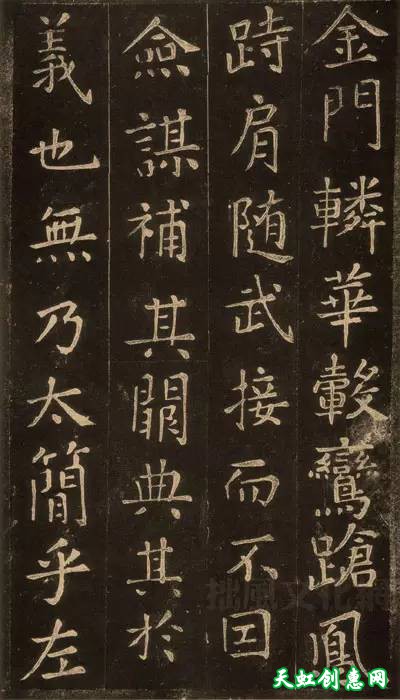 金門轔華轂鸞蹌鳳
跱肩随武接而不因
僉謀補其闕典其於
義也無乃太簡乎左
拙風文化網
天虹创惠网